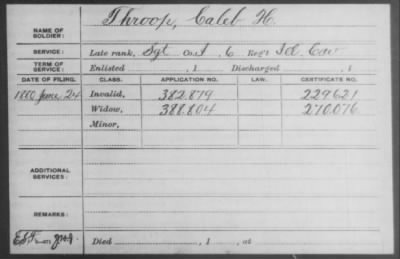 NAME OF SOLDIER: Throop, Caleb H.
SERVICE: Late rank, Sgt Co. I, 6 Reg't Cav
TERM OF SERVICE: Enlisted , 1 Discharged , 1
DATE OF FILING. CLASS. APPLICATION NO. LAW. CERTIFICATE NO.
1880 June 24 Invalid, 382.879 229621
Widow, 388.804 270.076
Minor,
ADDITIONAL SERVICES:
REMARKS:
Died , 1 , at